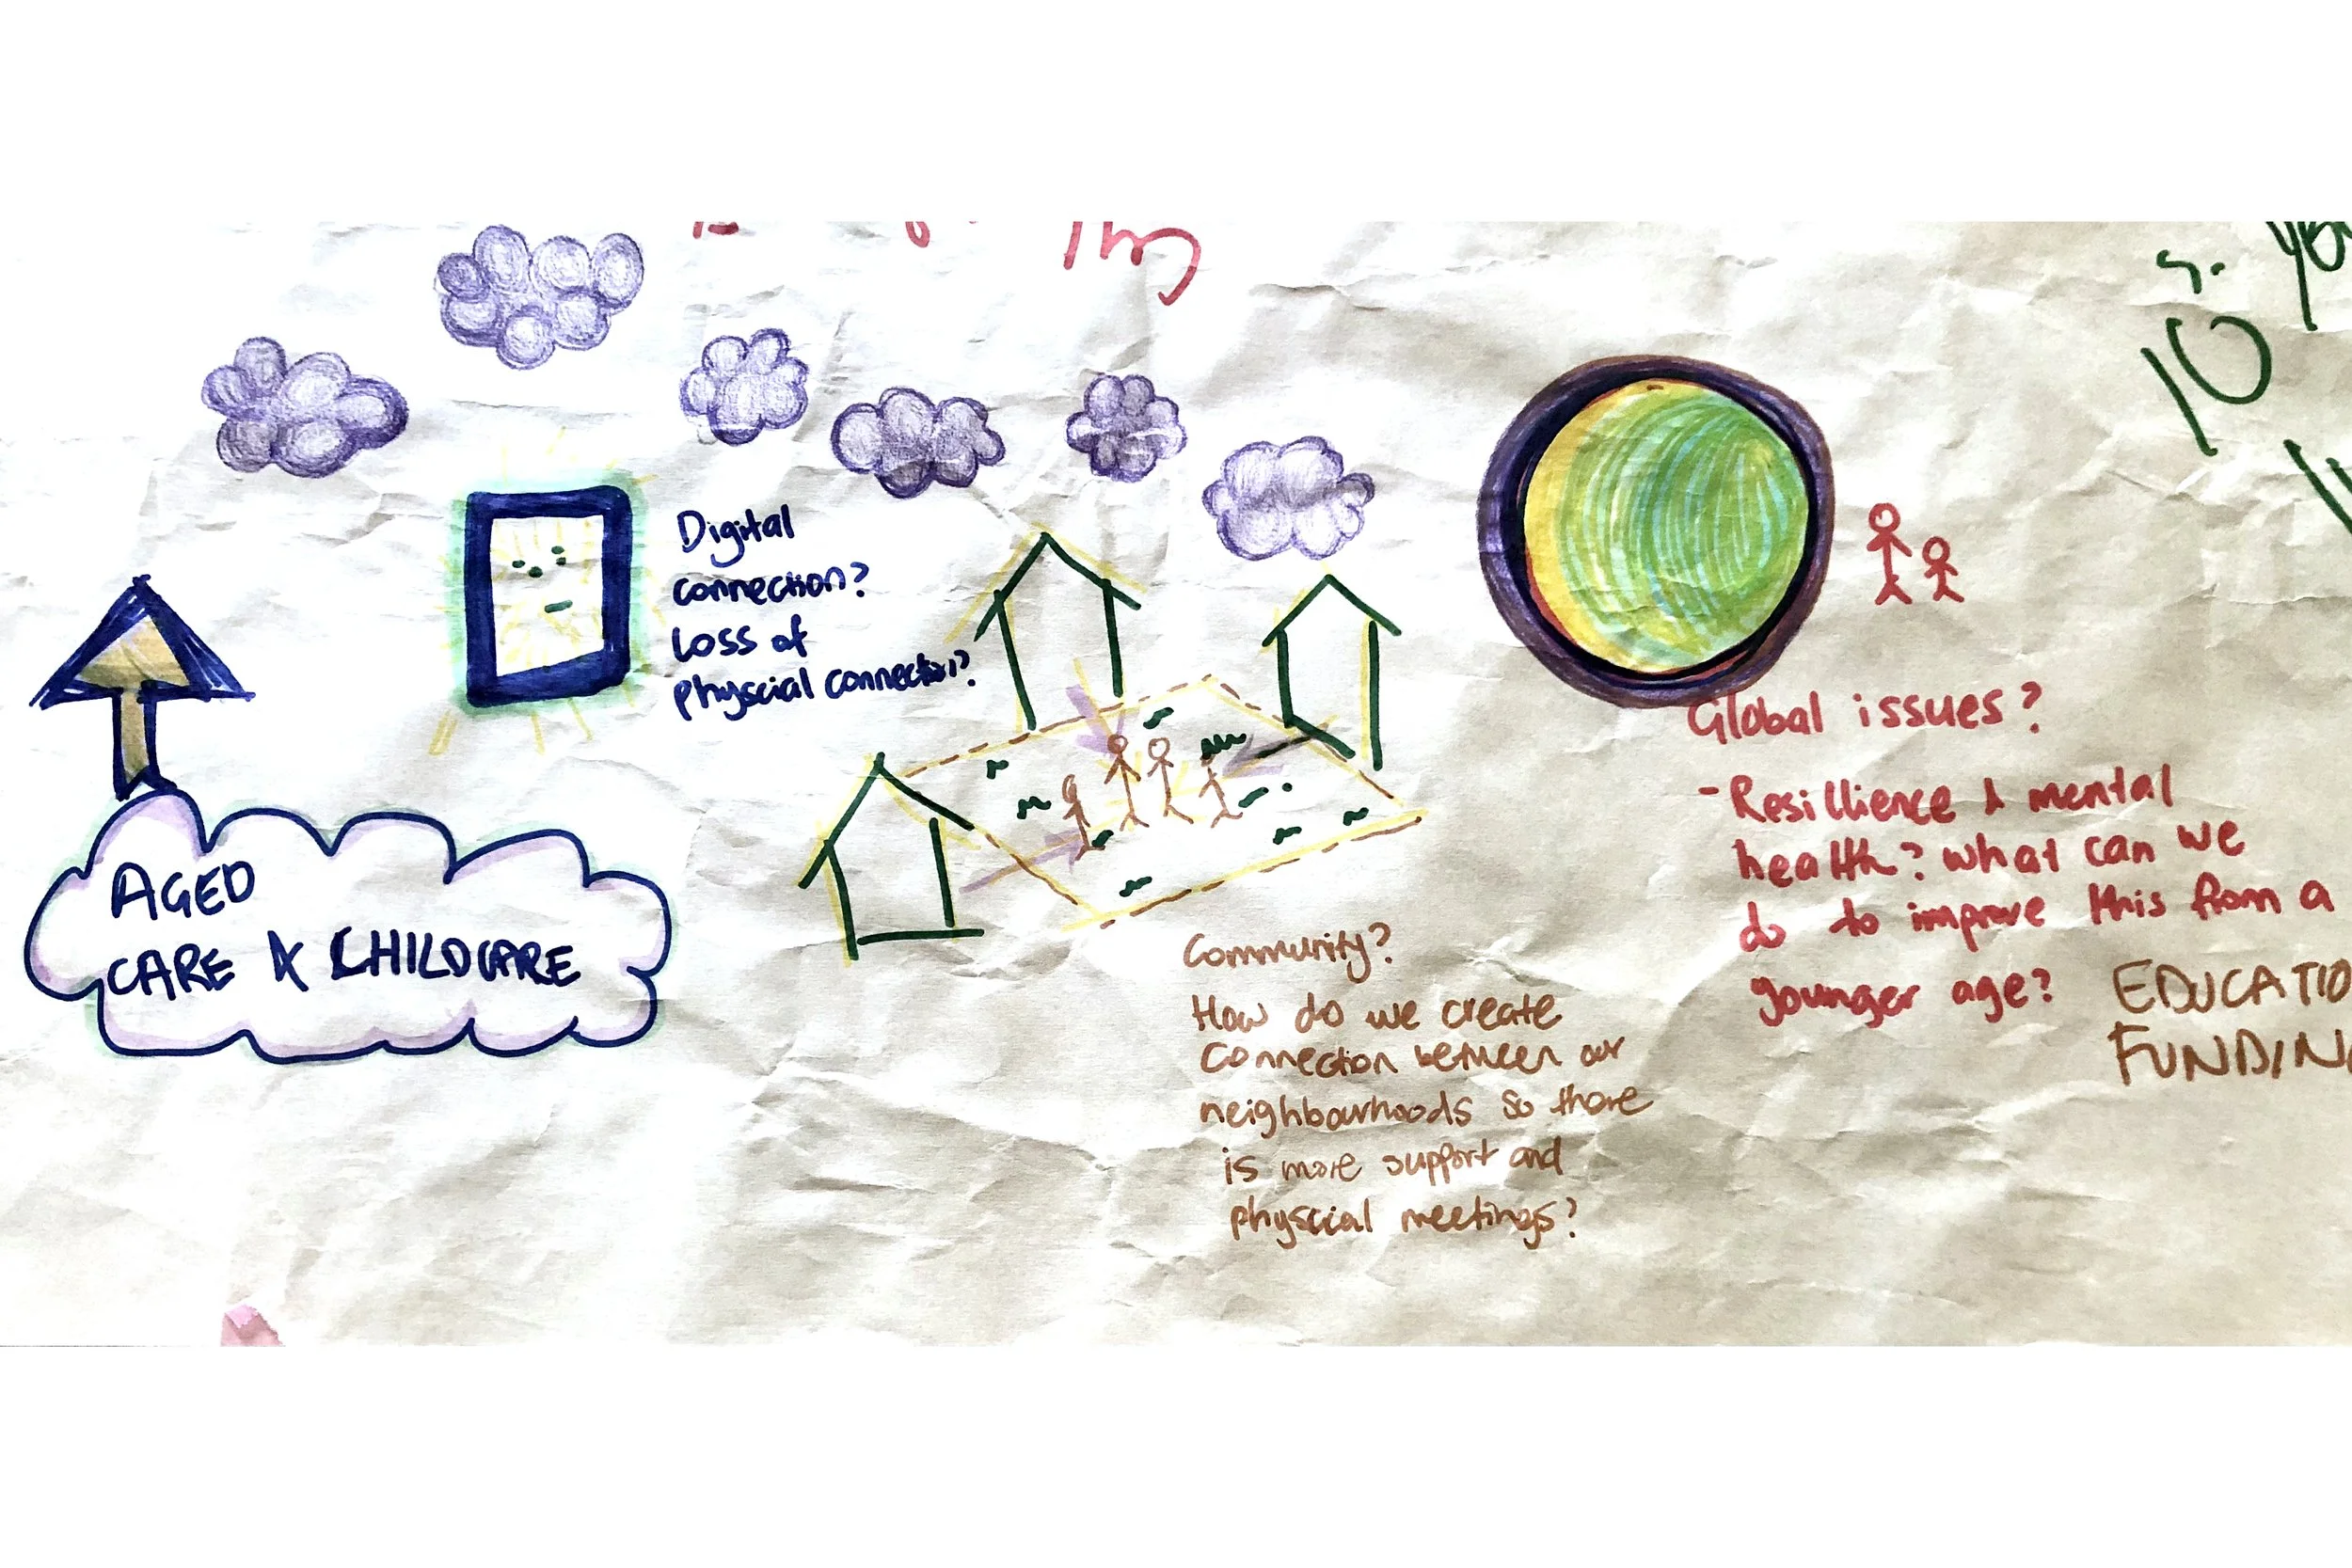 Digital
connection?
Loss of
physcial connection?
AGED
CARE & CHILDCARE
Community?
How do we create
connection between our
neighbourhoods so there
is more support and
physcial meetings?
Global issues?
- Resillience & mental
health? what can we
do to improve this from a
younger age?
EDUCATIO
FUNDIN
10